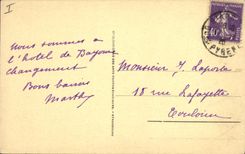 I
Nous sommes à
l'hotel de Bayonne
changement
Bons baisers
Marthe
Monsieur J. Laporte
18 rue Lafayette
Toulouse